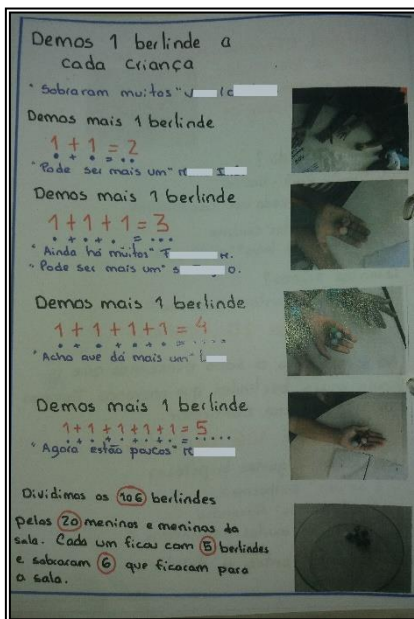 Demos 1 berlinde a
cada criança
"Sobraram muitos"
Demos mais 1 berlinde
1 + 1 = 2
"Pode ser mais um"
Demos mais 1 berlinde
1 + 1 + 1 = 3
"Ainda há muitos"
"Pode ser mais um"
Demos mais 1 berlinde
1 + 1 + 1 + 1 = 4
"Acho que dá mais um"
Demos mais 1 berlinde
1 + 1 + 1 + 1 + 1 = 5
"Agora estão poucos"
Dividimos os 106 berlindes
pelas 20 meninos e meninas da
sala. Cada um ficou com 5 berlindes
e sobraram 6 que ficaram para
a sala.